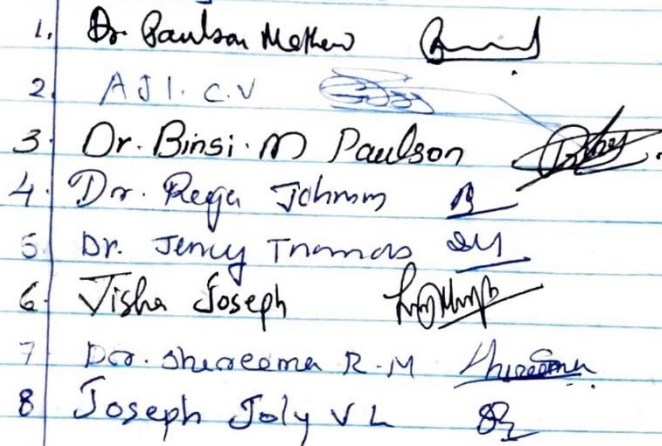 1. Dr. Paulson Mathew
2 AJI. C.V
3. Dr. Binsi. M Paulson
4. Dr. Regi Johnson
5. Dr. Jency Thomas
6. Jisha Joseph
7 Dr. Shereema R.M Shereema
8 Joseph Joly V L